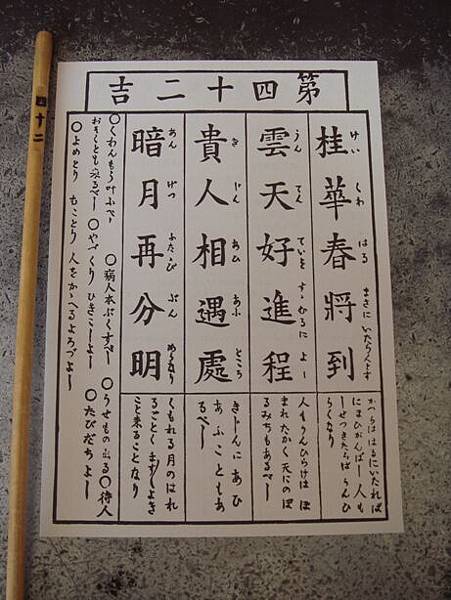 第四十二吉
けい くわ はる まさに いたらんとす
桂華春將到
かつらははるにいたれば
人も
しせつきたらば うんひ
らくなり
うん てん ていを すゝむるに よし
雲天好進程
人もうんひらけはほ
まれたかく天にのぼ
るみちもあるべし
き じん あひ あふ ところ
貴人相遇處
きじんにあひ
あふこともあ
るべし
あん げつ ふたゝび ぶん めいなり
暗月再分明
くもれる月のはれ
るごとく よき
こと来ることなり
○くわんもう叶ふべし ○病人本ぷくすべし ○うせもの出る○待人
おそくとも来るべし ○やづくり ひきこしよし ○たびだちよし
○よめとり むことり 人をかゝへるよろづよし
四十二